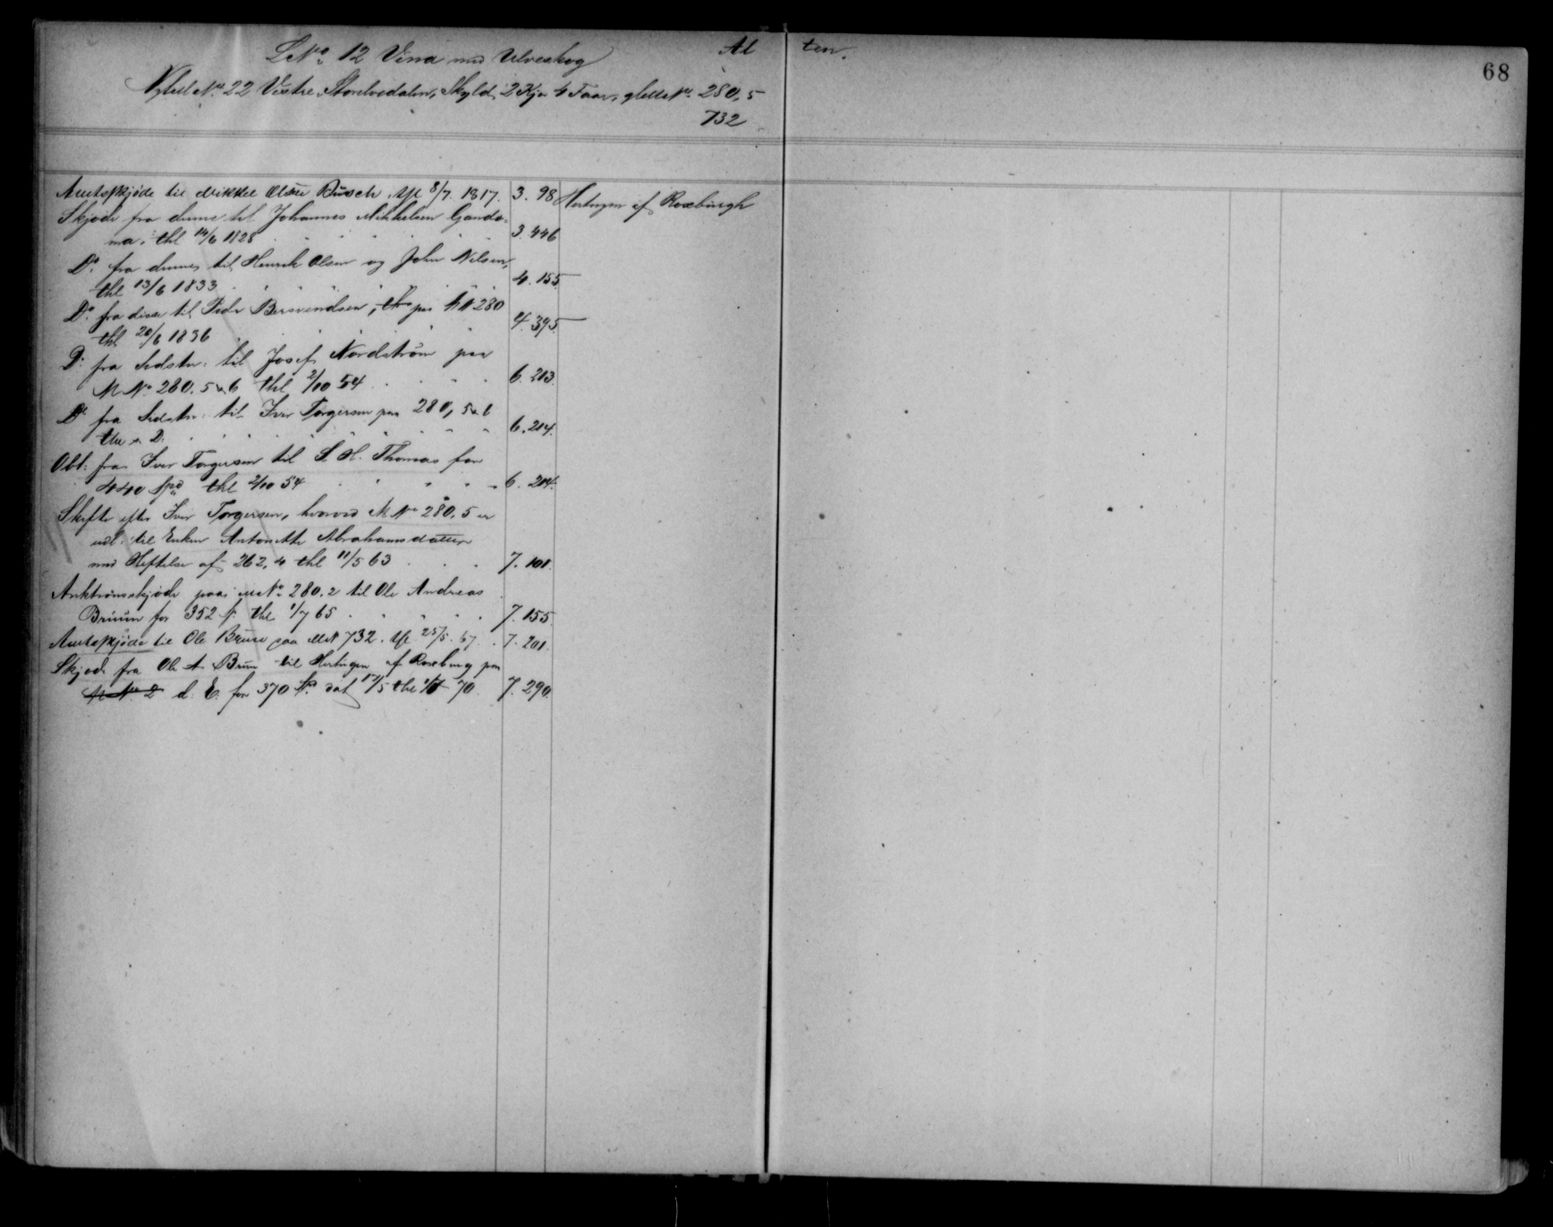 LNo 12 Vina med Ulveskog
Al ten.
68
Nyt LNo 22 Vestre Storelvdalen, Skyld. 2 Kju 4 Taar, gl MNo 280,5
732
Amtskjøde til Mikkel Olsen Busch. thl 8/7. 1817. 3. 98 Hertugen af Roxburgh
Skjøde fra denne til Johannes Mikkelsen
thl 14/6 1828 3. 446
Do fra denne til Henrik Olsen og John Nilsen,
thl 13/6 1833 4. 155
Do fra disse til Peder Bersvendsen, paa MN 280
thl 20/6 1836 4. 395
Do fra Sidstn. til Josef Nordström paa
MNo 280. 5 & 6 thl 2/10 54 6. 213.
Do fra Sidstn. til Iver Torgersen paa 280, 5 & 6
thl s. D. 6. 214.
Obl. fra Iver Torgersen til S. H. Thomas for
440 spd thl 2/10 54 6. 214.
Skifte efter Iver Torgersen, hvorved MNo 280. 5 er
udl. til Enken Antonette Abrahamsdatter
med Heftelse af 262. 4 thl 11/5 63 7. 101.
Auktionsskjøde paa MNo 280. 2 til Ole Andreas
Bruun for 352 thl 1/7 65 7. 155
Amtskjøde til Ole Bruun paa MN 732. thl 25/5. 67. 7. 201.
Skjøde fra Ole A. Bruun til Hertugen af Roxburg paa
d. E. for 370 Sp. dat 17/5 thl 70. 7. 290.